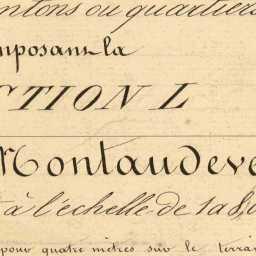 ntons ou quartiers
mposant la
CTION L
Montaudeve
t à l'échelle de 1 à 8,0
pour quatre mètres sur le terra